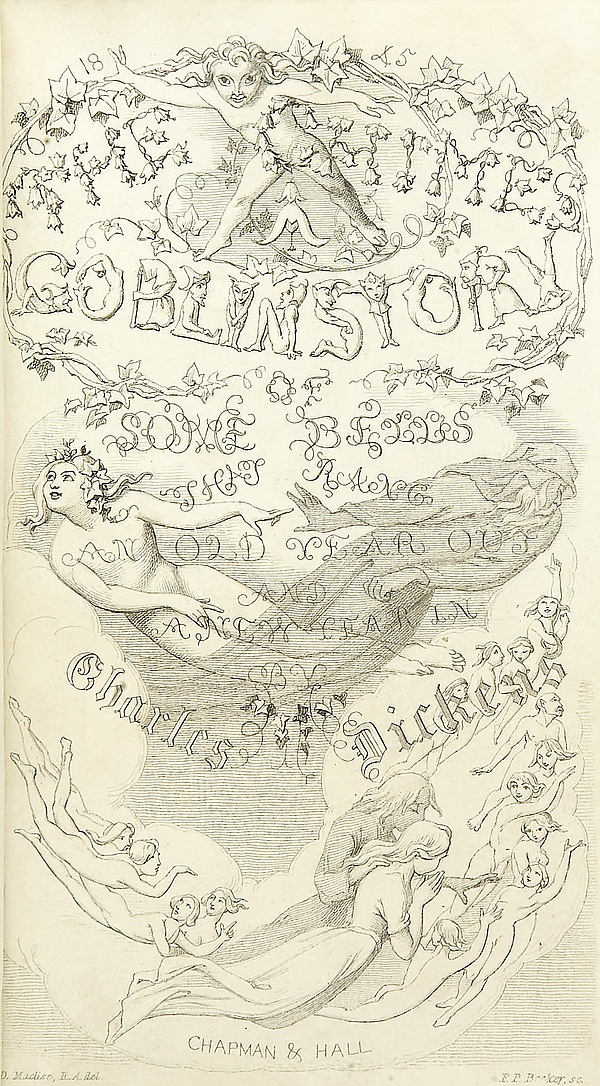 1845
THE CHIMES
A
GOBLIN STORY
OF
SOME BELLS
THAT RANG
AN OLD YEAR OUT
AND
A NEW YEAR IN
BY
Charles Dickens
CHAPMAN & HALL
D. Maclise, R.A. del.
F. P. Becker, sc.